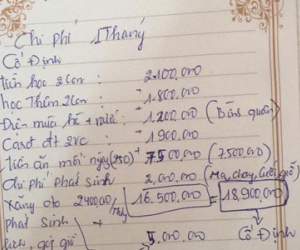 Chi phí 1 Tháng
Cố Định
Tiền học 2 con : 2.100.000
học Thêm 2 con : 1.800.000
Điện nước : 1.200.000 (Bình quân)
Card đt 2 vc : 900.000
Tiền ăn mỗi ngày (250) + 7500.000 (7.500.000)
Chi phí phát sinh 2.000.000 (Ma chay, cưới, giỗ)
Xăng oto 2400000/ 16.500.000 = 18.900.000
phát sinh + Cố Định
.000.000